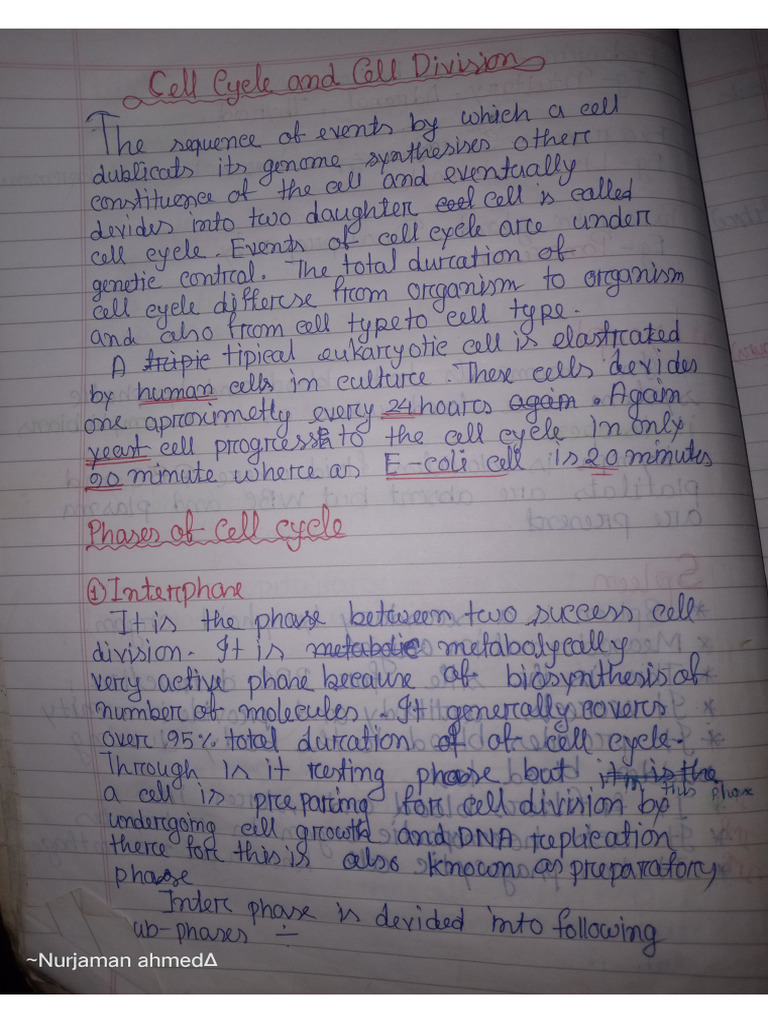 Cell Cycle and Cell Division
The sequence of events by which a cell
dublicats its genome synthesises other
constituence of the cell and eventually
devides into two daughter cell is called
cell cycle. Events of cell cycle are under
genetic contral. The total duration of
cell cycle differse from organism to organism
and also from cell type to cell type.
A tipical eukaryotic cell is elastrated
by human cells in culture. These cells devides
one aproximetly every 24 hoars again. Again
yeast cell progress to the cell cycle in only
90 minute where as E-coli cell is 20 minutes
Phases of Cell cycle
① Interphase
It is the phase between two success cell
division. It is metabolic metabalycally
very active phase because of biosynthesis of
number of molecules. It generally covers
over 95% total duration of of cell cycle.
Through is it resting phase but it is the
in this phase
a cell is preparing for cell division by
undergoing cell growth and DNA replication
there for this is also known as preparatory
phase
Inter phase is devided into following
ub-phases ÷
~Nurjaman ahmed∆